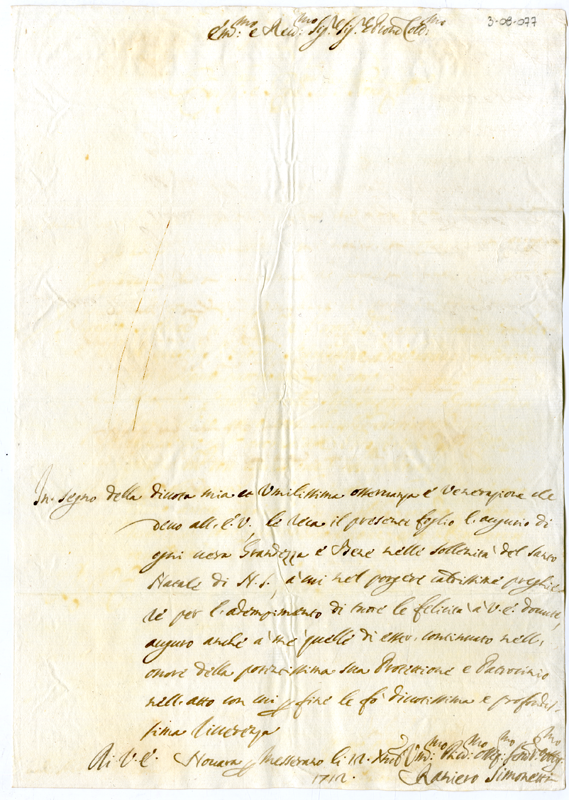 3-08-077
Em:mo e Reu:mo Sig:r Sig:r Prone Col:mo
In segno della diuota mia et Vmilissima osseruanza é Venerazione che
deuo all'E. V. le reca il presente foglio l'augurio di
ogni uera Grandezza é Bene nelle sollenità del Santo
Natale di N. S., à cui nel porgere preghie
re per l'adempimento di tutte le felicità à V. E. douute,
auguro anche a mé quelle di esser continuato nell'
onore della sua Protezzione e Patrocinio
nell'atto con cui fine le fò diuotissima e profondis
sima riuerenza
Di V. E. Nouara Messerano li 12. Xbre
1712.
Raniero Simonetti